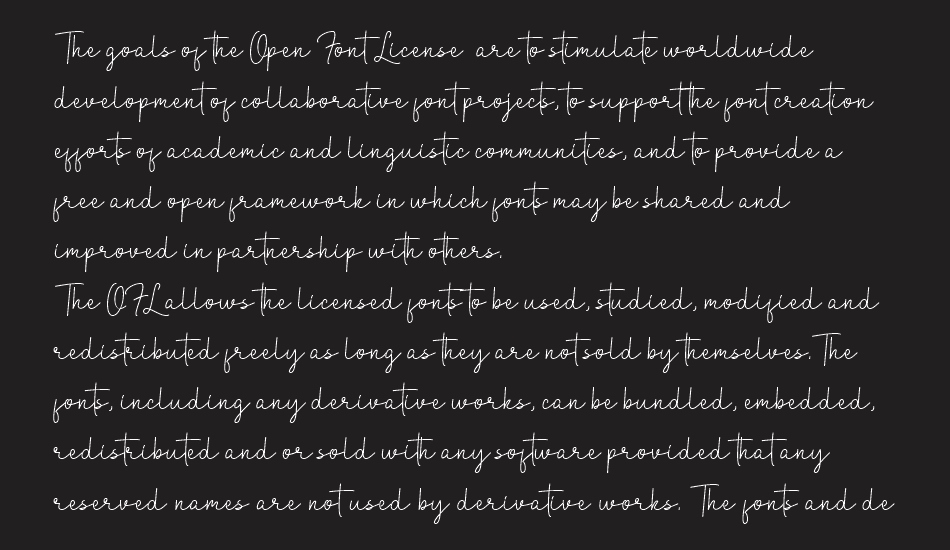 The goals of the Open Font License are to stimulate worldwide
development of collaborative font projects, to support the font creation
efforts of academic and linguistic communities, and to provide a
free and open framework in which fonts may be shared and
improved in partnership with others.
The OFL allows the licensed fonts to be used, studied, modified and
redistributed freely as long as they are not sold by themselves. The
fonts, including any derivative works, can be bundled, embedded,
redistributed and or sold with any software provided that any
reserved names are not used by derivative works. The fonts and de